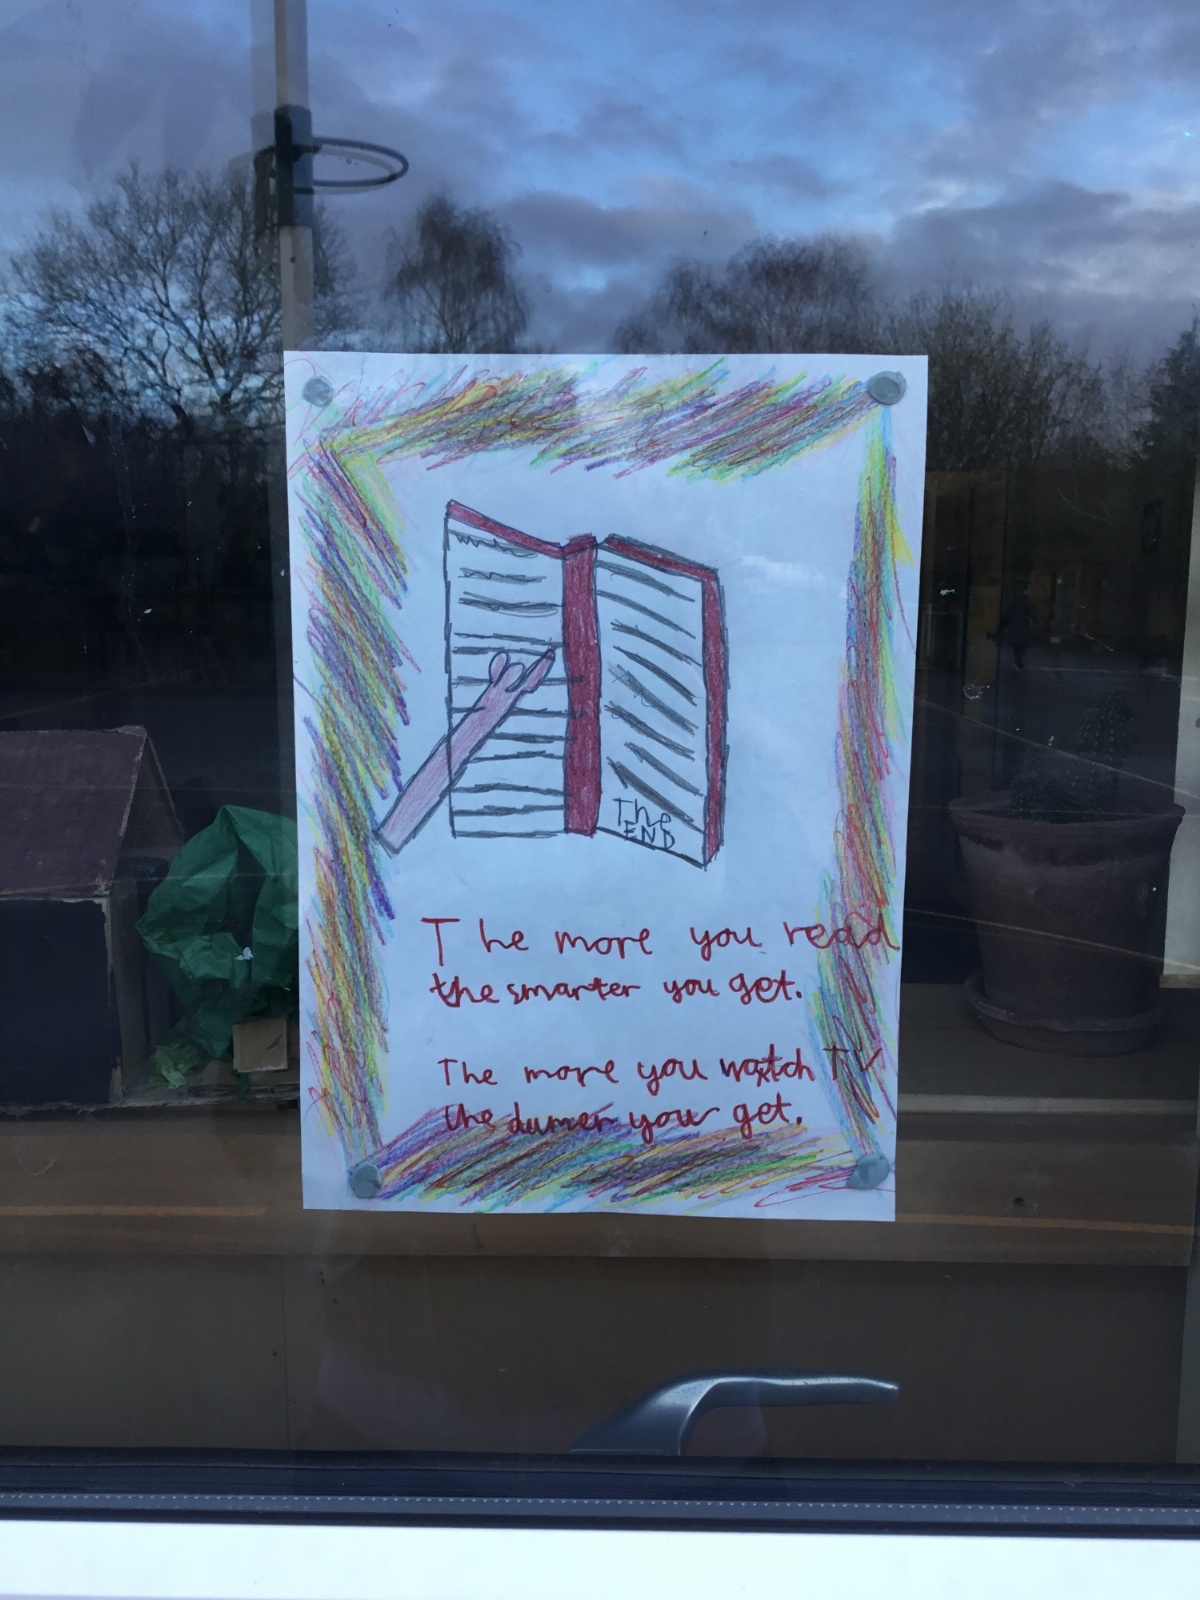 The
END
The more you read
the smarter you get.
The more you watch TV
the dumer you get.